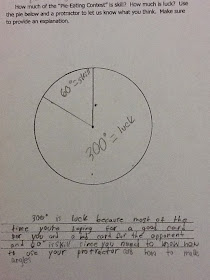 How much of the "Pie Eating Contest" is skill? How much is luck? Use
the pie below and a protractor to let us know what you think. Make sure
to provide an explanation.
60°=skill
300° = luck
300° is luck because most of the
time you're hoping for a good card
for you and a bad card for the opponent
and 60° is skill since you need to know how
to use your protractor and how to make
angles.